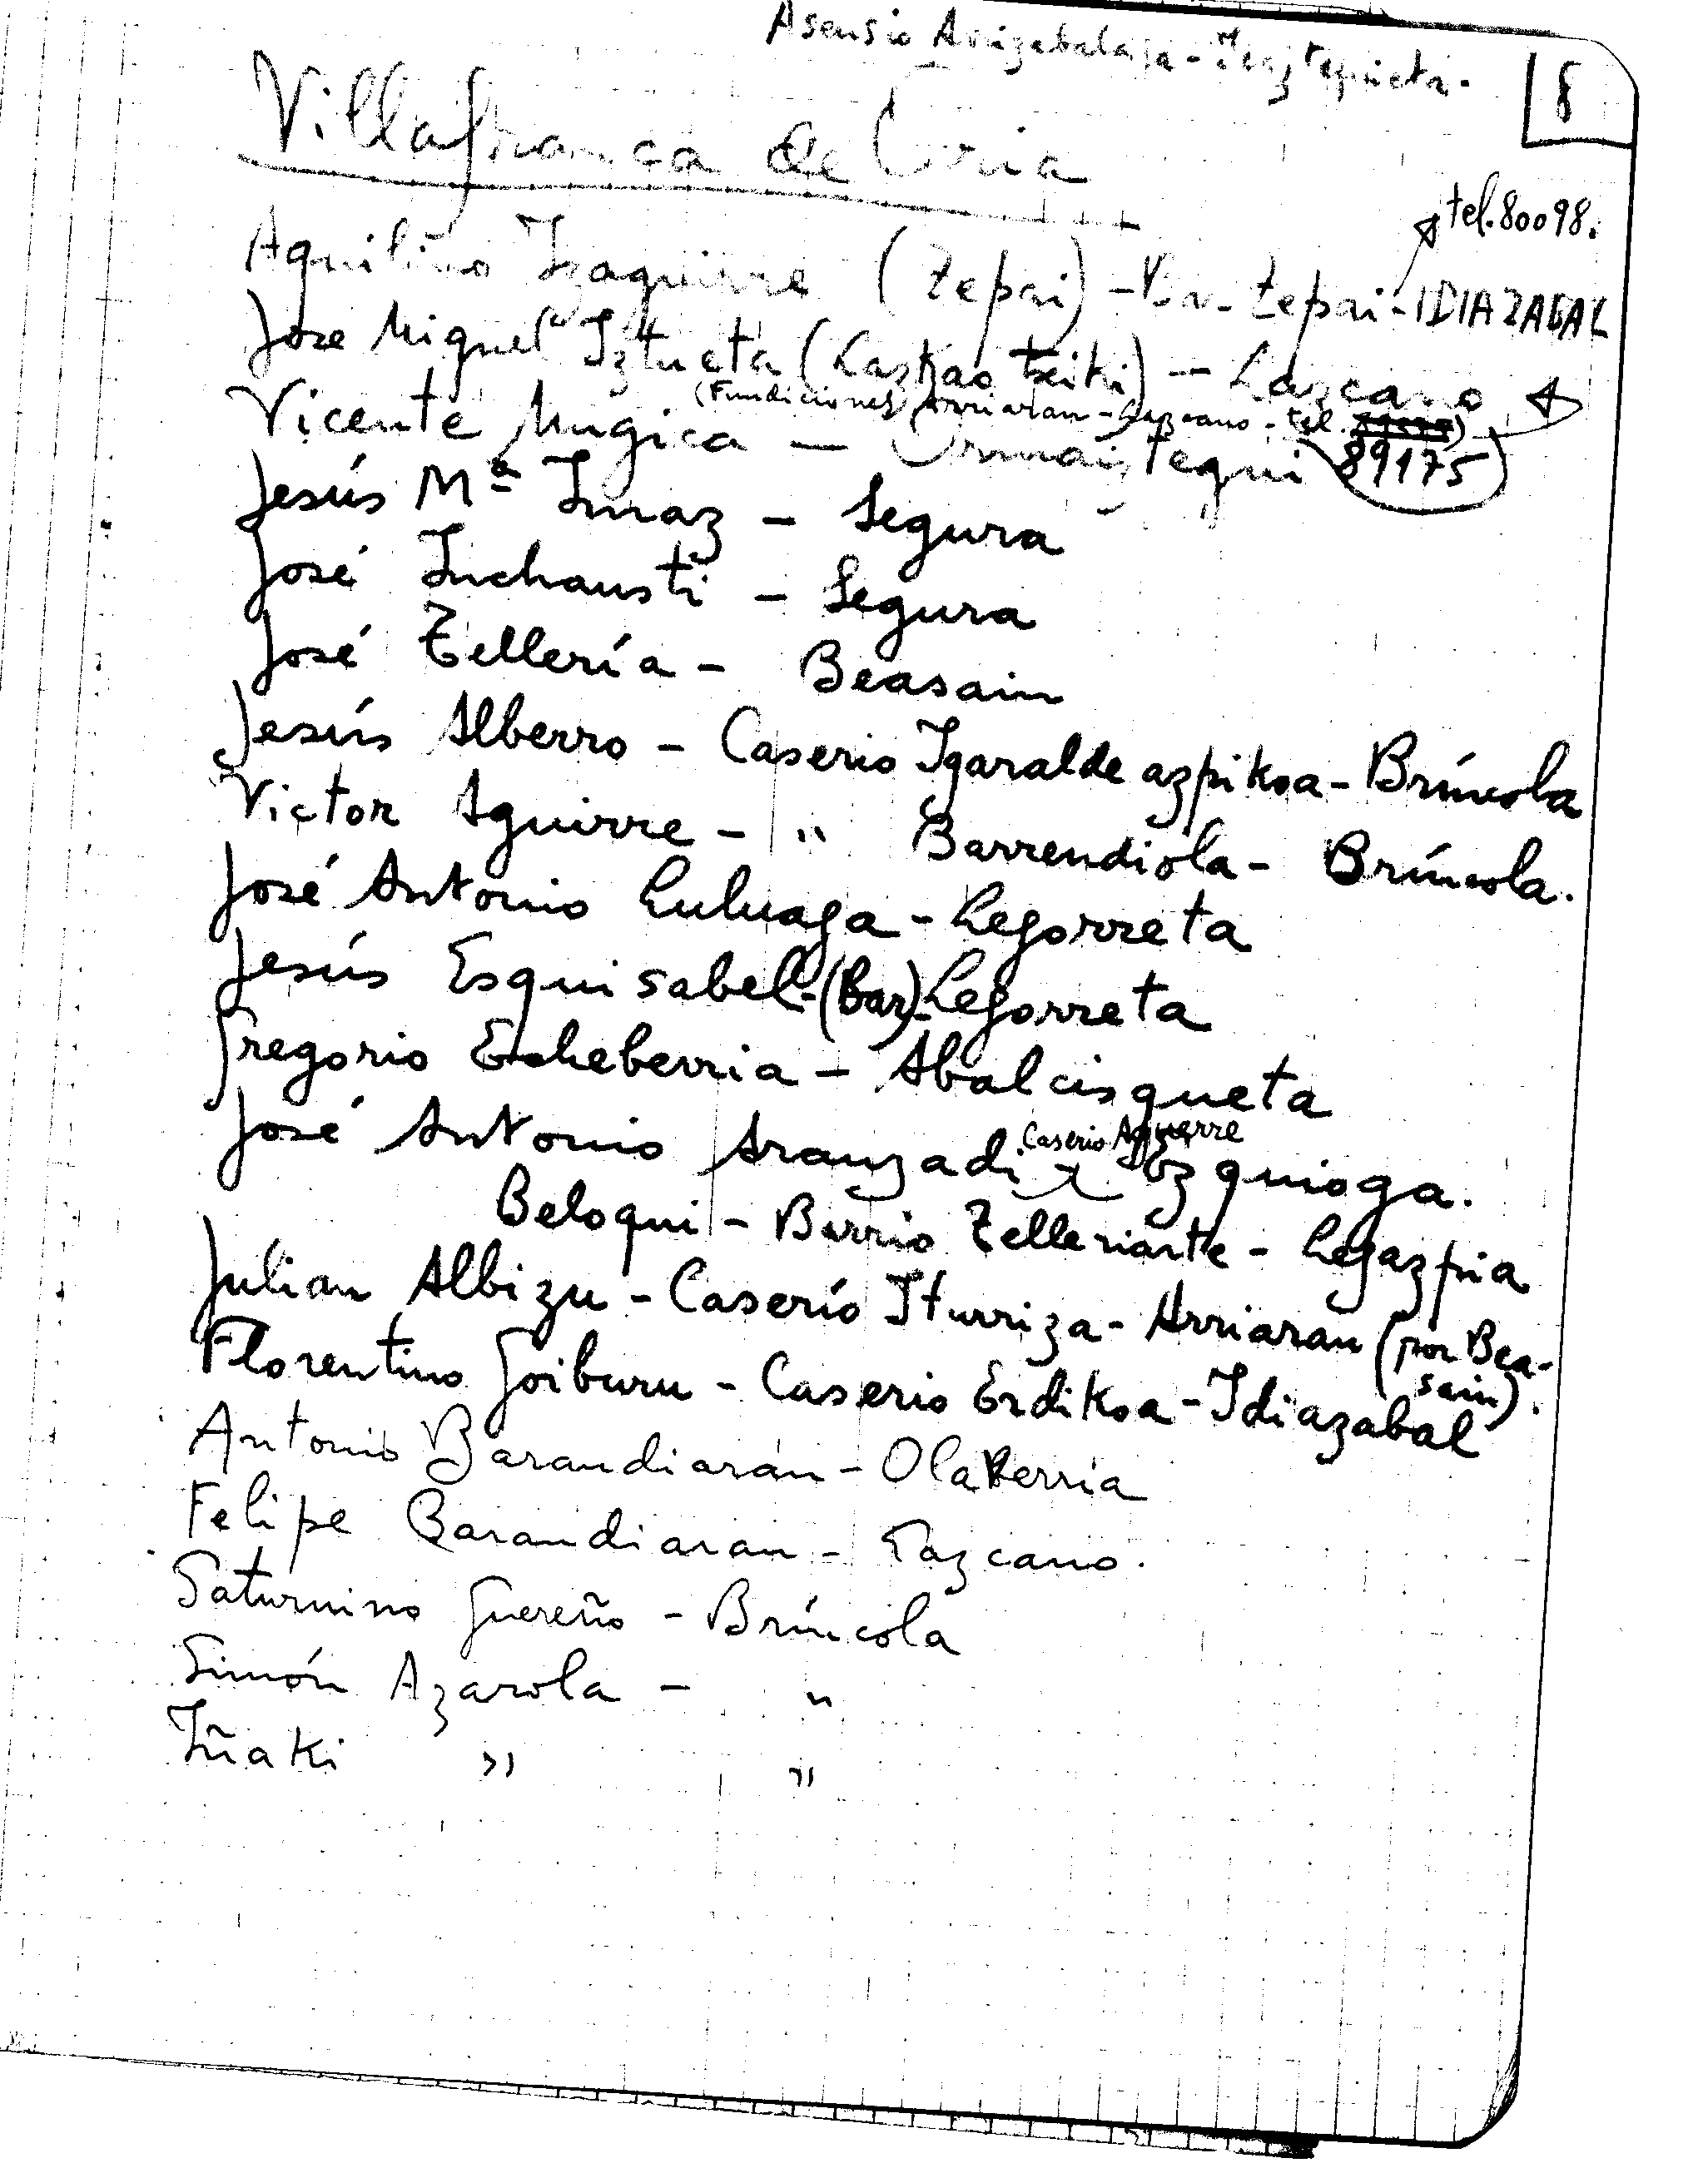 Asensio Arrizabalaga - Icaztegieta.
8
Villafranca de Oria
tel. 80098.
Aquilino Izaguirre (Zepai) - Zepai - IDIAZABAL
Jose Miguel Iztueta (Lazkao txiki) - Lazcano
(Fundiciones Arriaran - Lazcano - tel.
Vicente Mugica - Ormaiztegui 89175
Jesús Mª Imaz - Segura
José Inchausti - Segura
José Tellería - Beasain
Jesús Alberro - Caserio Igaralde azpikoa - Bríncola
Victor Aguirre - " Barrendiola - Bríncola.
José Antonio Luluaga - Legorreta
Jesús Esquisabel - (Bar) - Legorreta
Gregorio Echeberria - Abalcisqueta
Caserio Aguerre
José Antonio Aranzadi - Ezquioga.
Beloqui - Barrio Telleriarte - Legazpia
Julian Albizu - Caserío Iturriza - Arriaran (por Bea-
sain).
Florentino Goiburu - Caserio Erdikoa - Idiazabal
Antonio Barandiarán - Olaberria
Felipe Barandiaran - Lazcano.
Saturnino Guereño - Bríncola
Simón Azarola - "
Iñaki " "